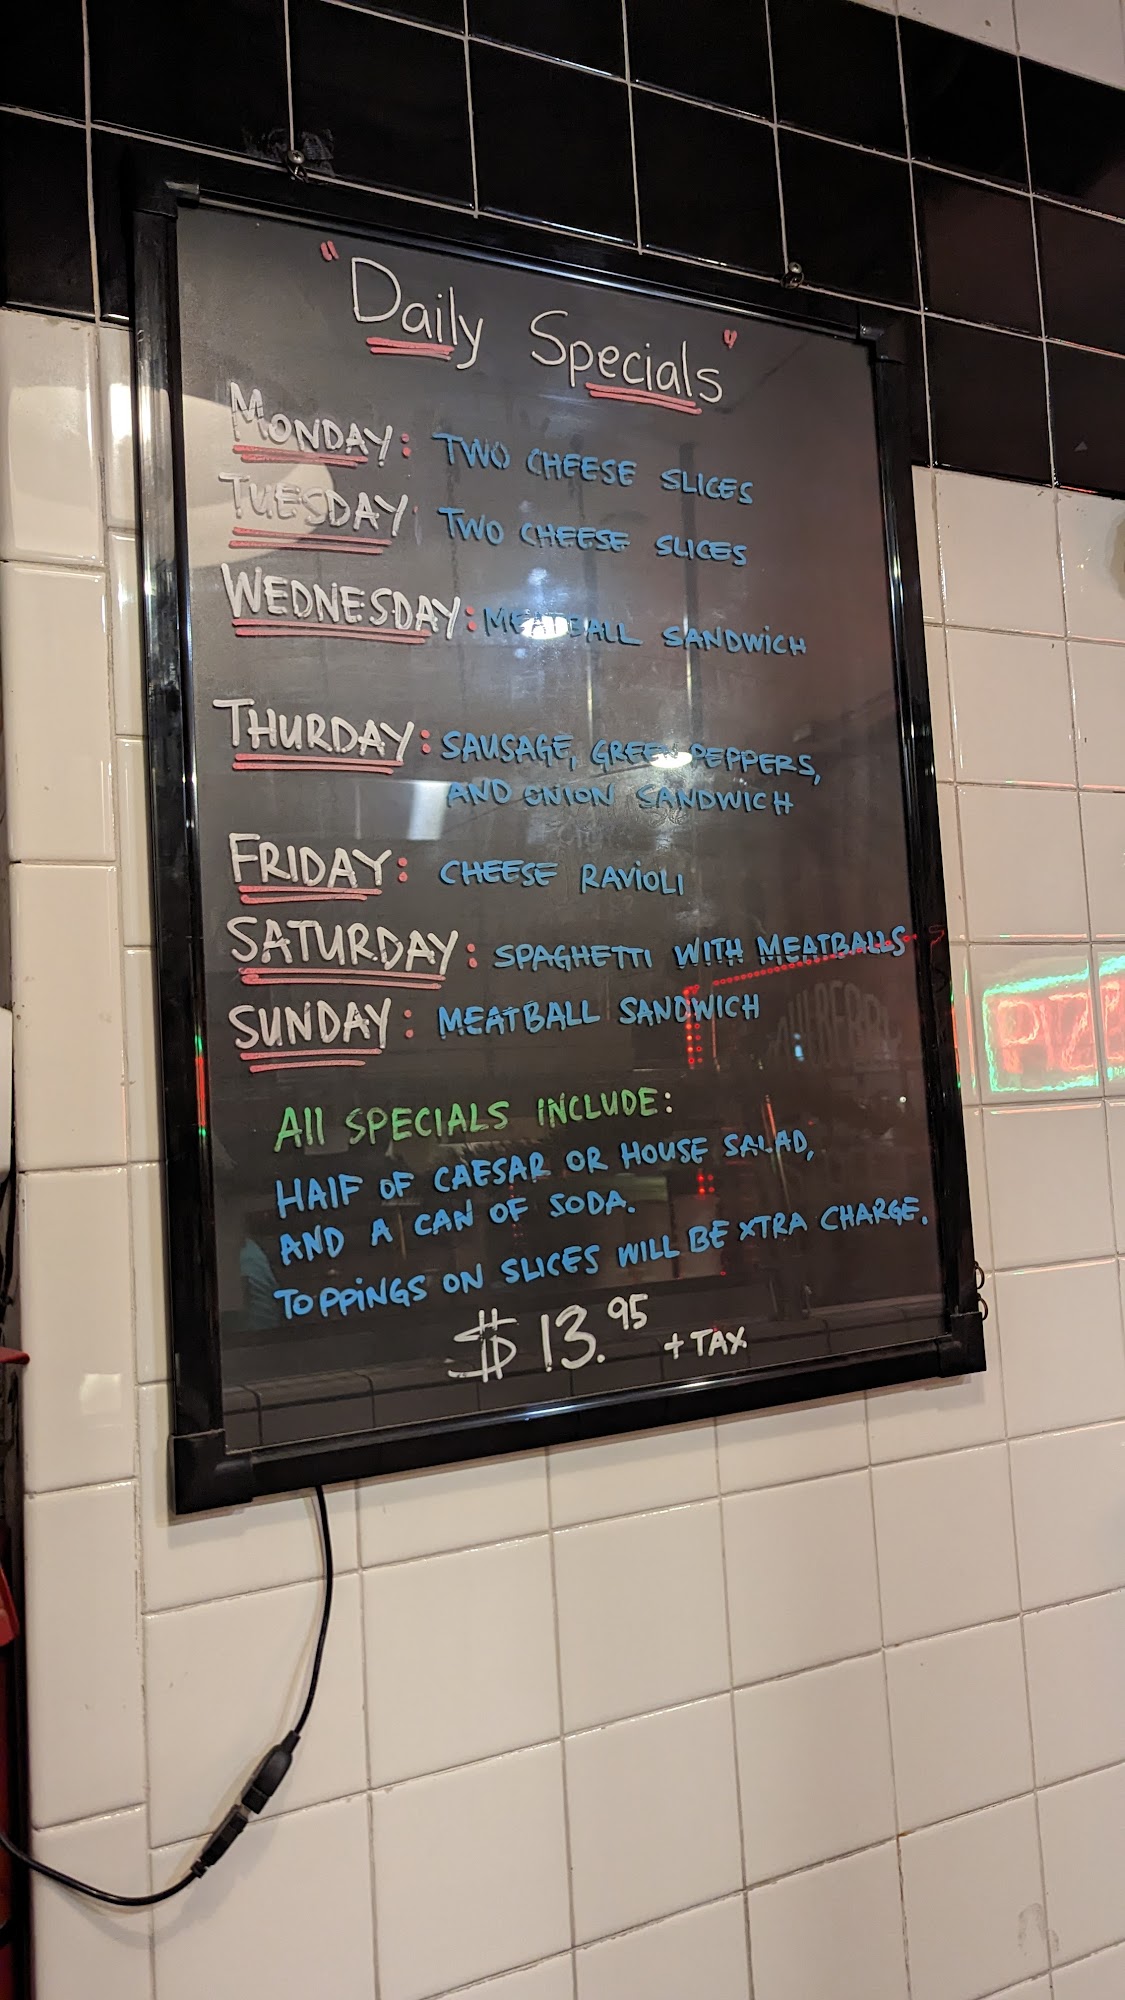 "Daily Specials"
MONDAY: TWO CHEESE SLICES
TUESDAY: TWO CHEESE SLICES
WEDNESDAY: MEATBALL SANDWICH
THURDAY: SAUSAGE, GREEN PEPPERS,
AND ONION SANDWICH
FRIDAY: CHEESE RAVIOLI
SATURDAY: SPAGHETTI WITH MEATBALLS
SUNDAY: MEATBALL SANDWICH
All SPECIALS INCLUDE:
HAlF OF CAESAR OR HOUSE SALAD,
AND A CAN OF SODA.
TOPPINGS ON SLICES WILL BE XTRA CHARGE.
$13.95 + TAX